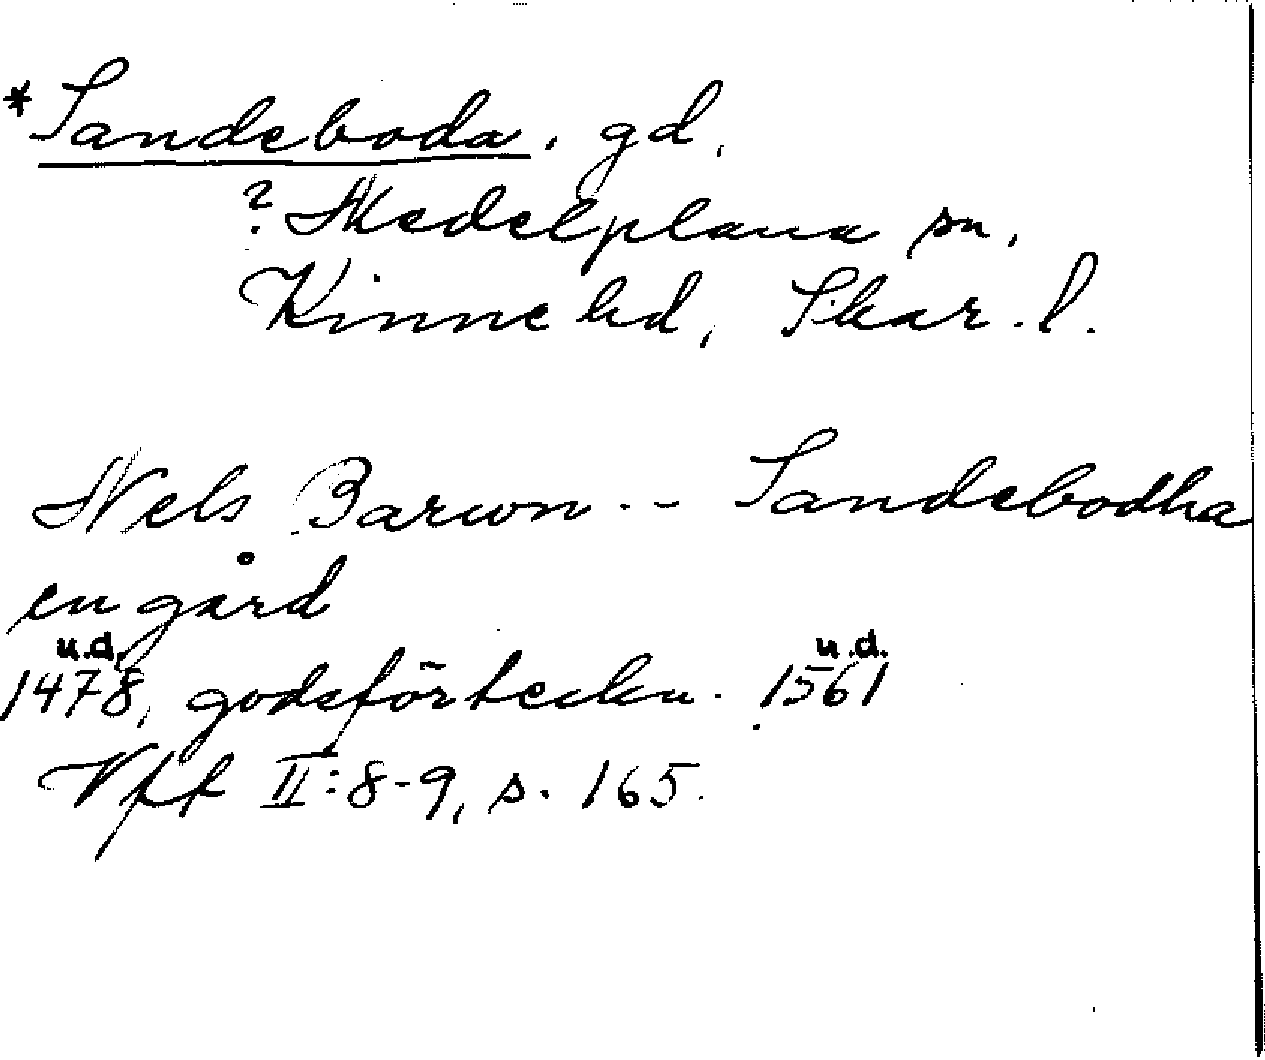 *Sandeboda, gd,
? Medelplana sn,
Kinne hd, Skar. l.
Nels Barwn -- Sandebodha
en gård
u.d. u.d.
1478, godsförteckn. 1561
Vff II:8-9, s. 165.